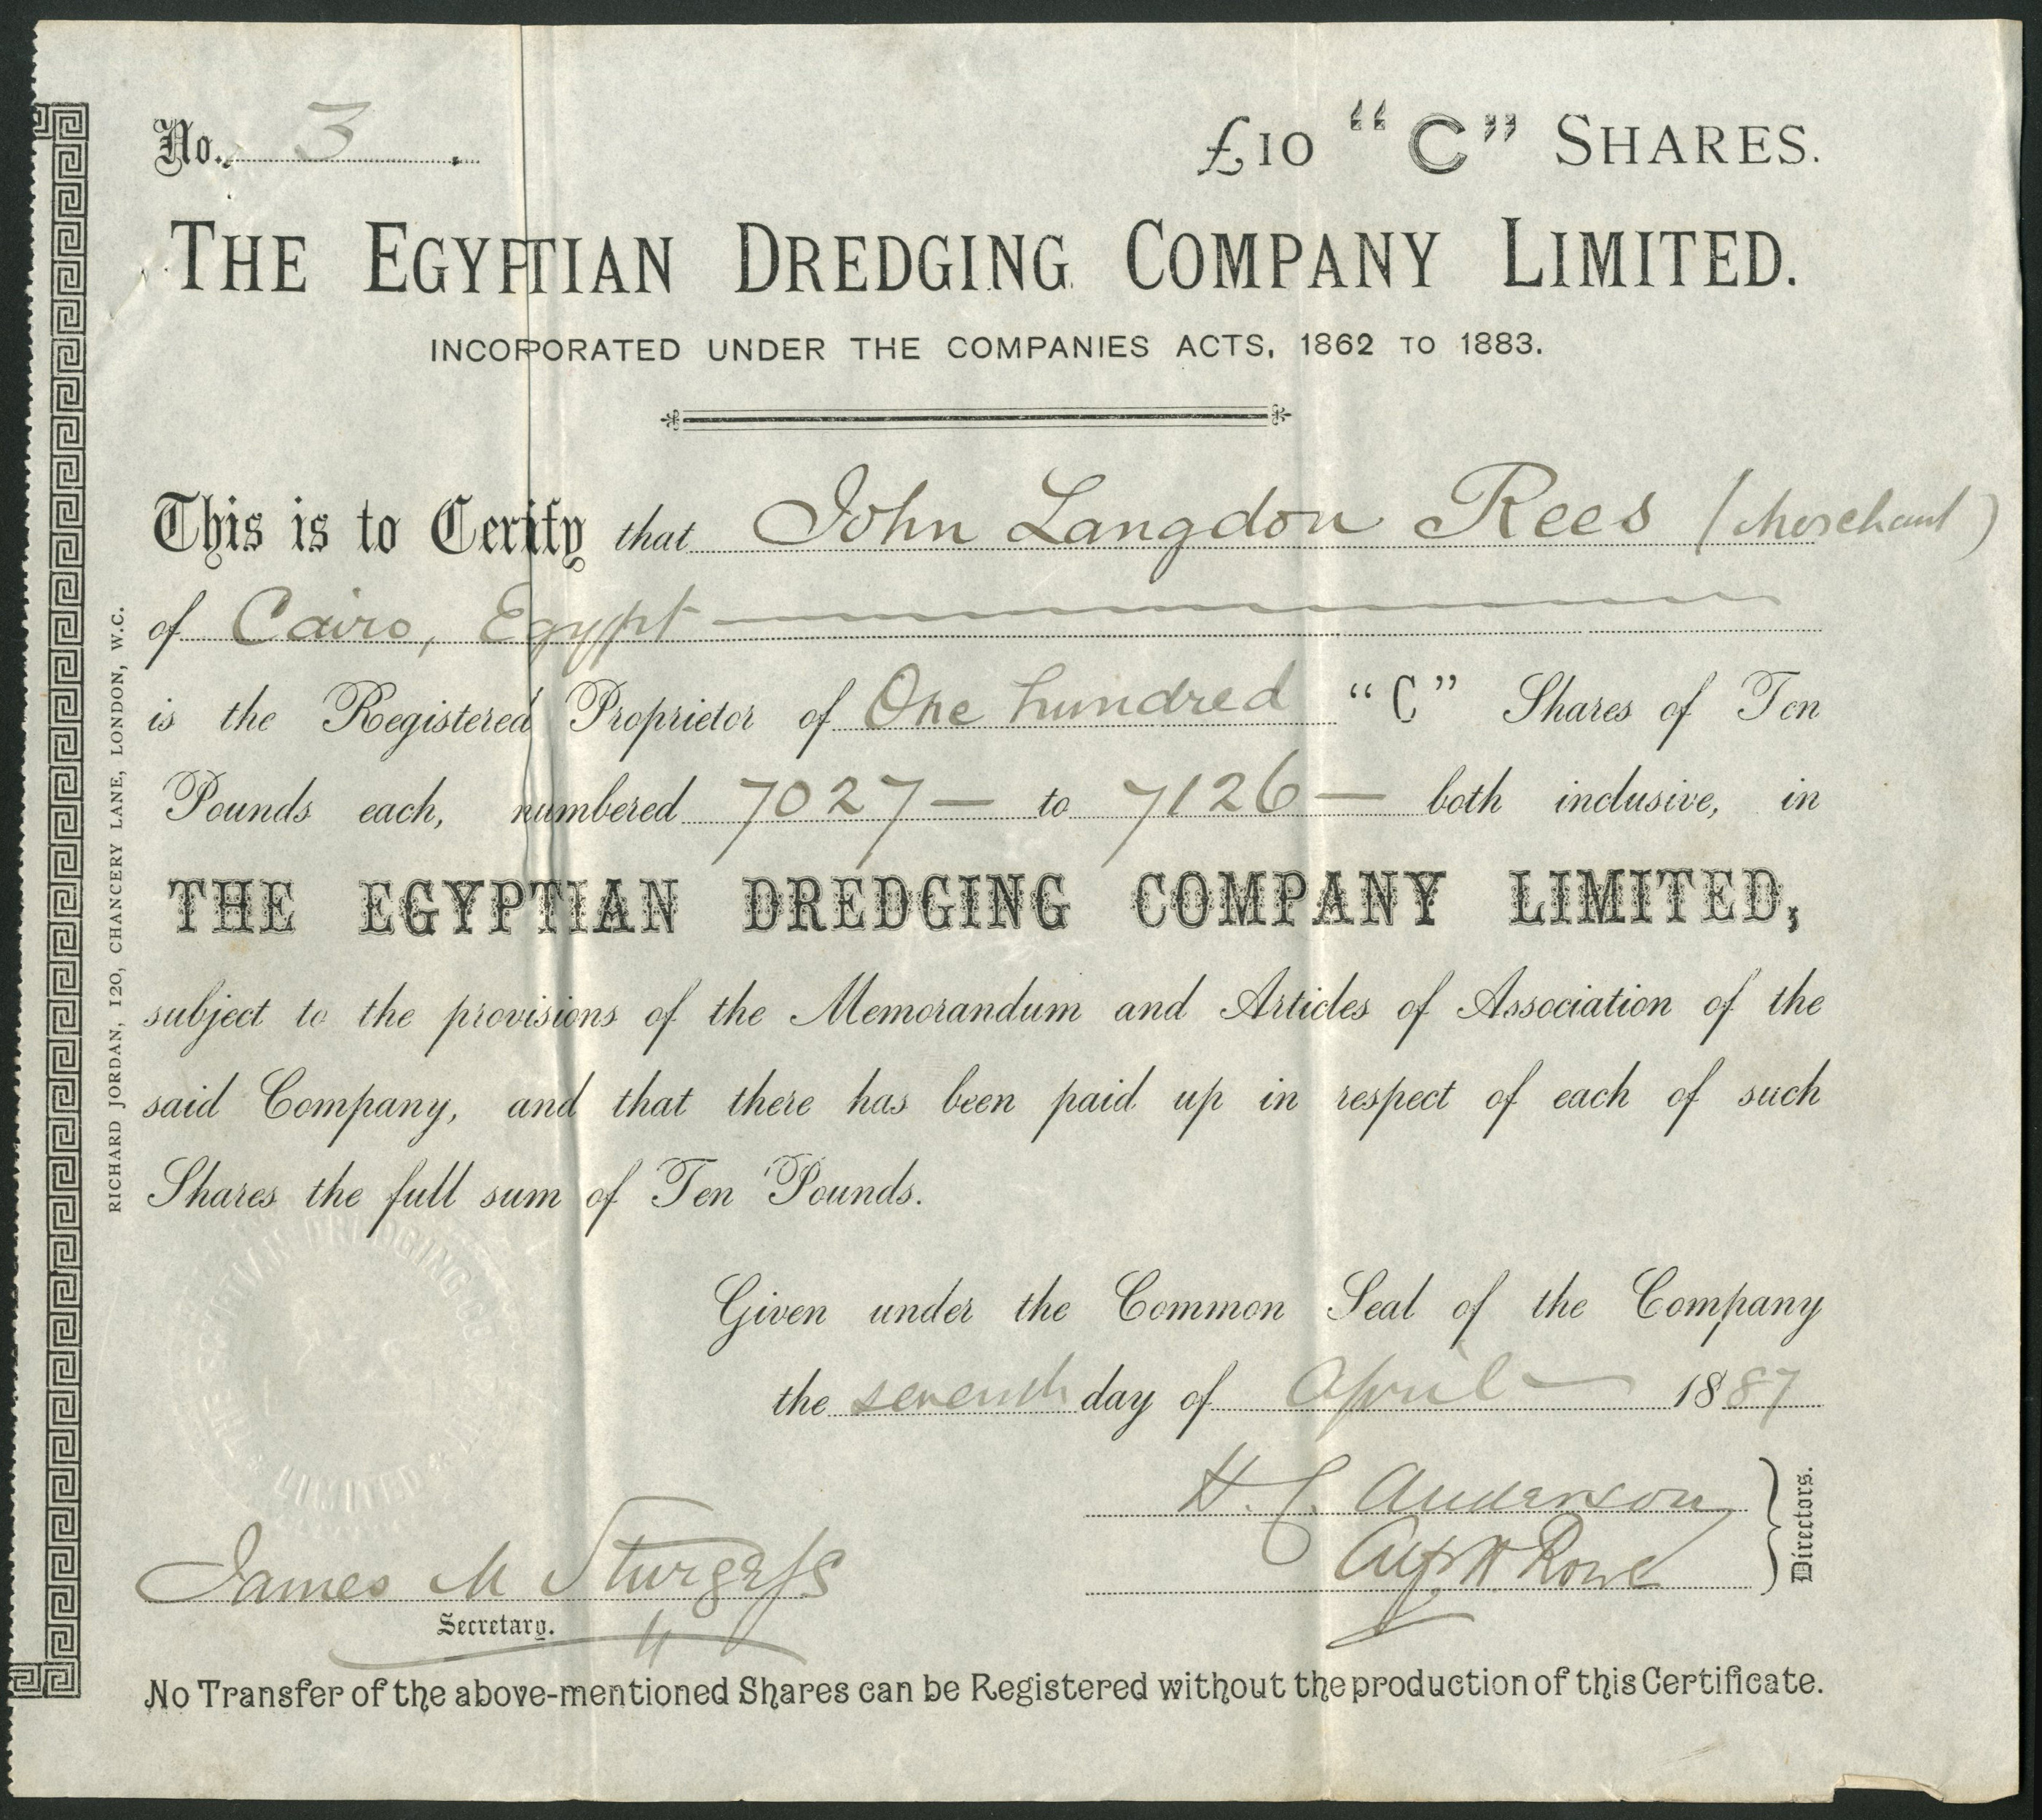 No. 3 £10 "C" SHARES.
THE EGYPTIAN DREDGING COMPANY LIMITED.
INCORPORATED UNDER THE COMPANIES ACTS, 1862 TO 1883.
This is to Certify that John Langdon Rees (Merchant)
of Cairo, Egypt
is the Registered Proprietor of One hundred "C" Shares of Ten
Pounds each, numbered 7027— to 7126— both inclusive, in
THE EGYPTIAN DREDGING COMPANY LIMITED,
subject to the provisions of the Memorandum and Articles of Association of the
said Company, and that there has been paid up in respect of each of such
Shares the full sum of Ten Pounds.
Given under the Common Seal of the Company
the seventh day of April 1887
H. C. Anderson
Alf. H. Rowe
Directors.
James M Sturgess
Secretary.
No Transfer of the above-mentioned Shares can be Registered without the production of this Certificate.
RICHARD JORDAN, 120, CHANCERY LANE, LONDON, W.C.
THE EGYPTIAN DREDGING COMPANY
LIMITED